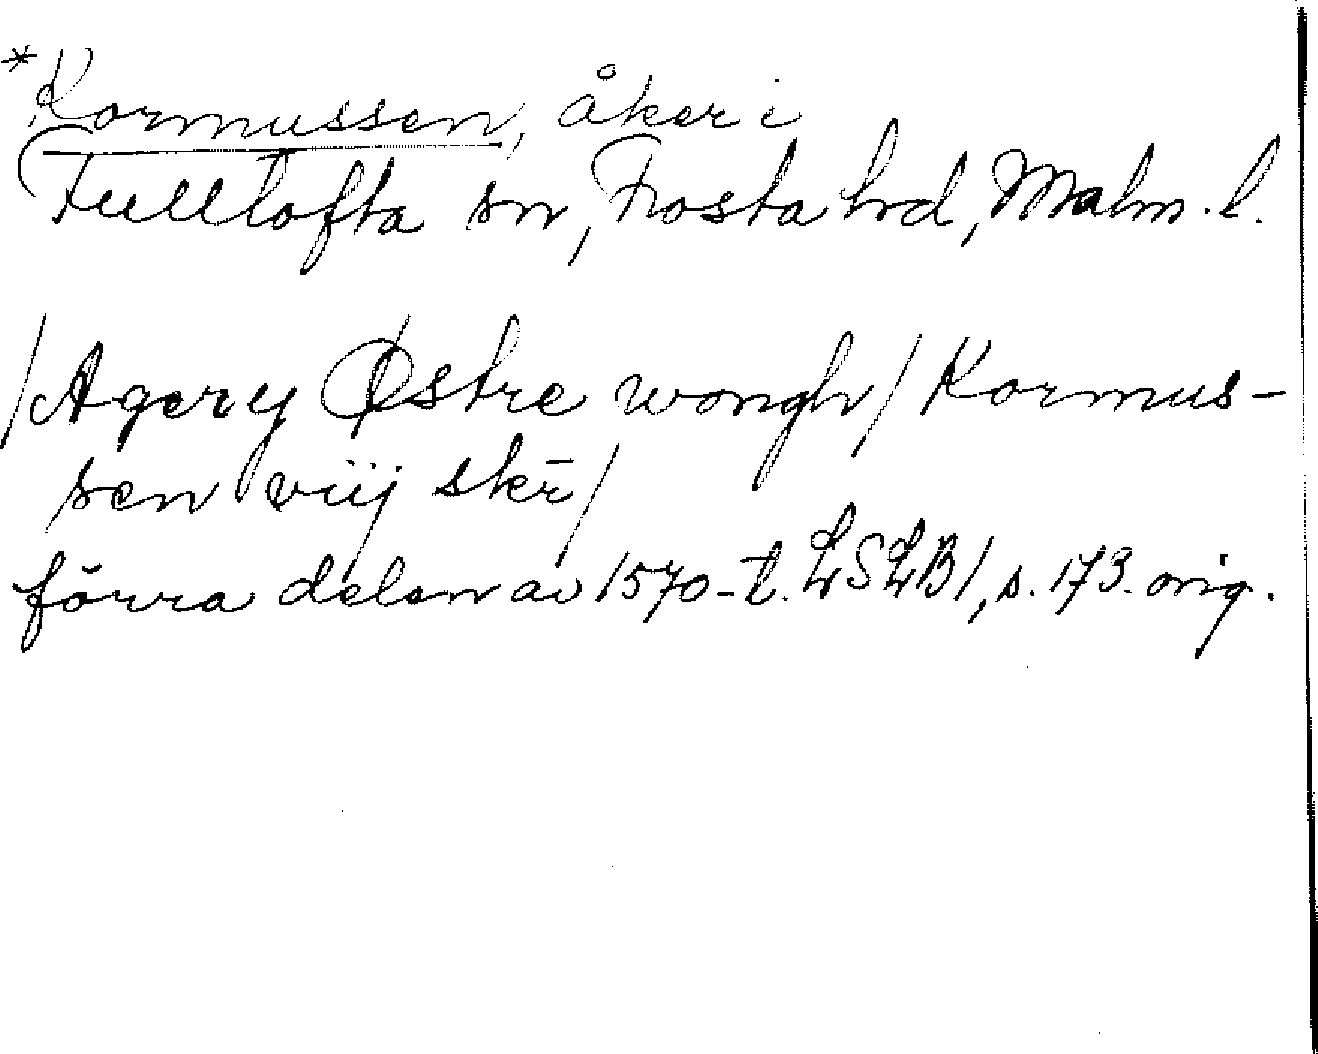 *Kormussen, åker i
Fulltofta sn, Frosta hrd, Malm. l.
/Agery Østre wongh/ Kormus-
sen viij skē/
förra delen av 1570-t. LSLB1, s. 173. orig.